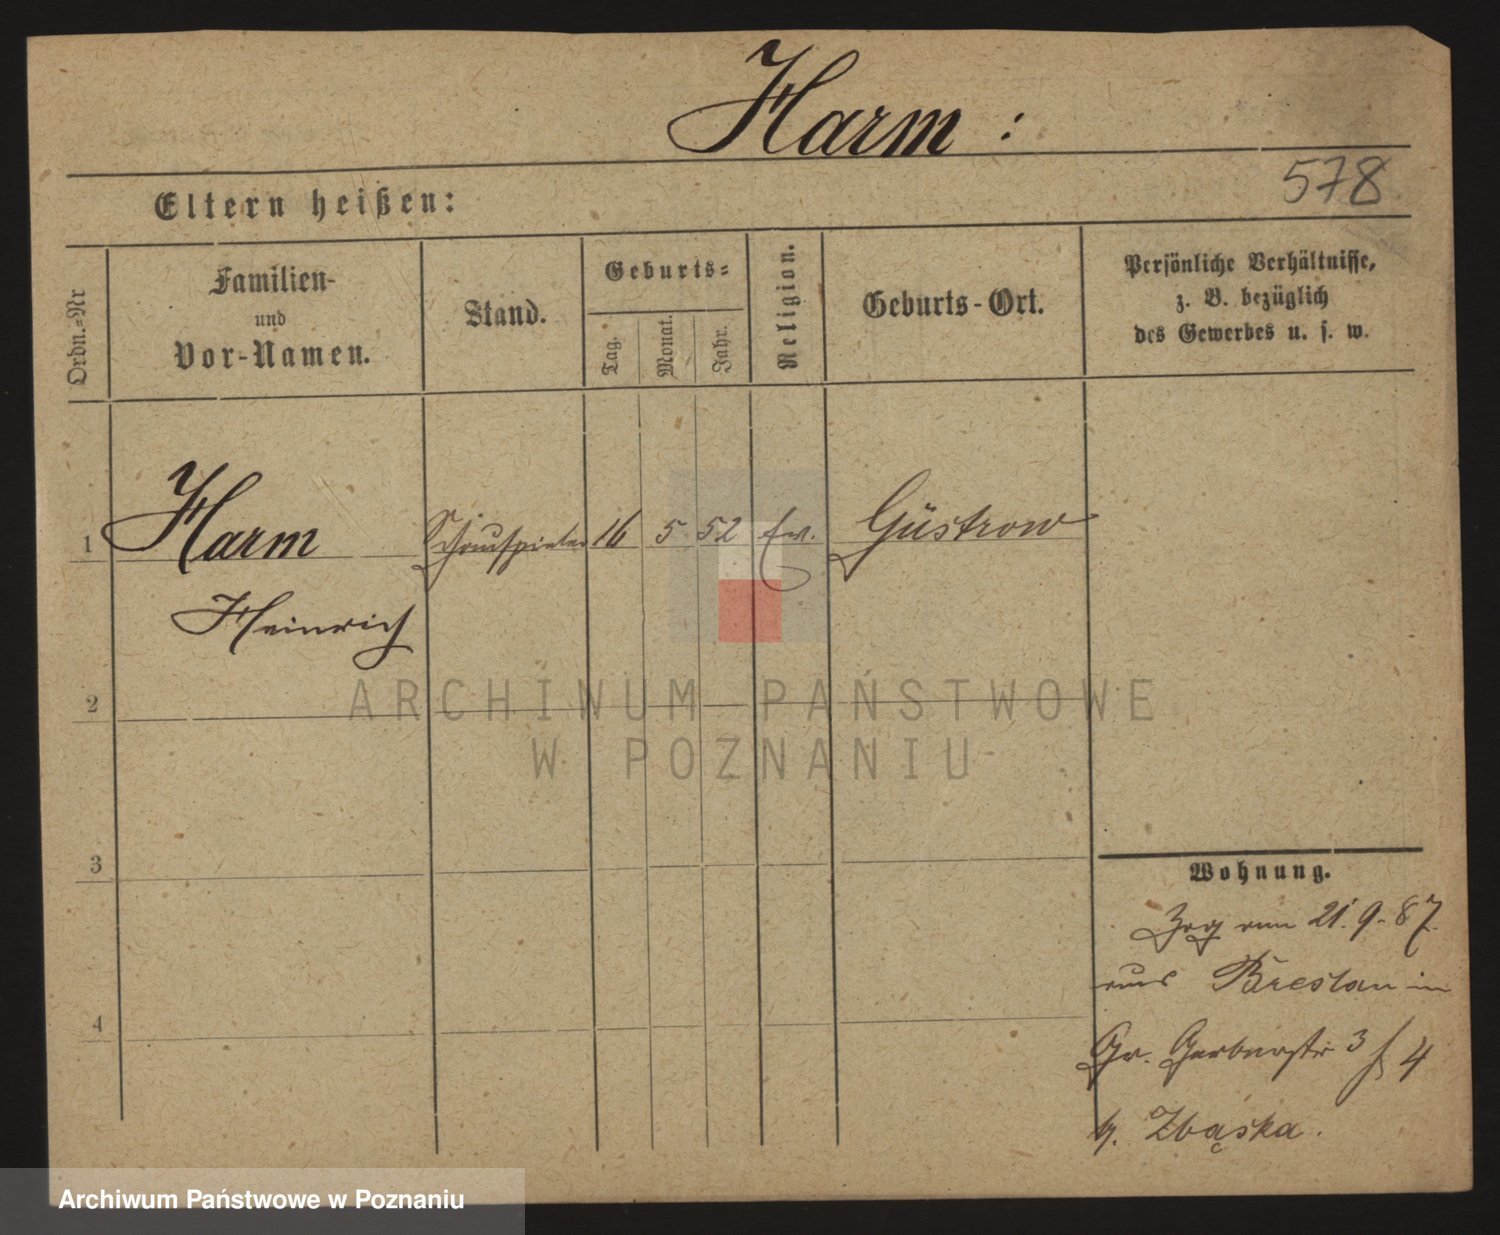 Harm :
578
Eltern heißen:
Ordn.-Nr
Familien-
und
Vor-Namen.
Stand.
Geburts-
Tag.
Monat.
Jahr.
Religion.
Geburts-Ort.
Persönliche Verhältnisse,
z. B. bezüglich
des Gewerbes u. s. w.
1 Harm Schauspieler 16 5 52 Ev. Güstrow
Heinrich
2
ARCHIWUM PAŃSTWOWE
W POZNANIU
3
Wohnung.
Zzg vom 21.9.87.
aus Breslau in
4
Gr. Gerberstr 3/4
b. Zbąska.
Archiwum Państwowe w Poznaniu